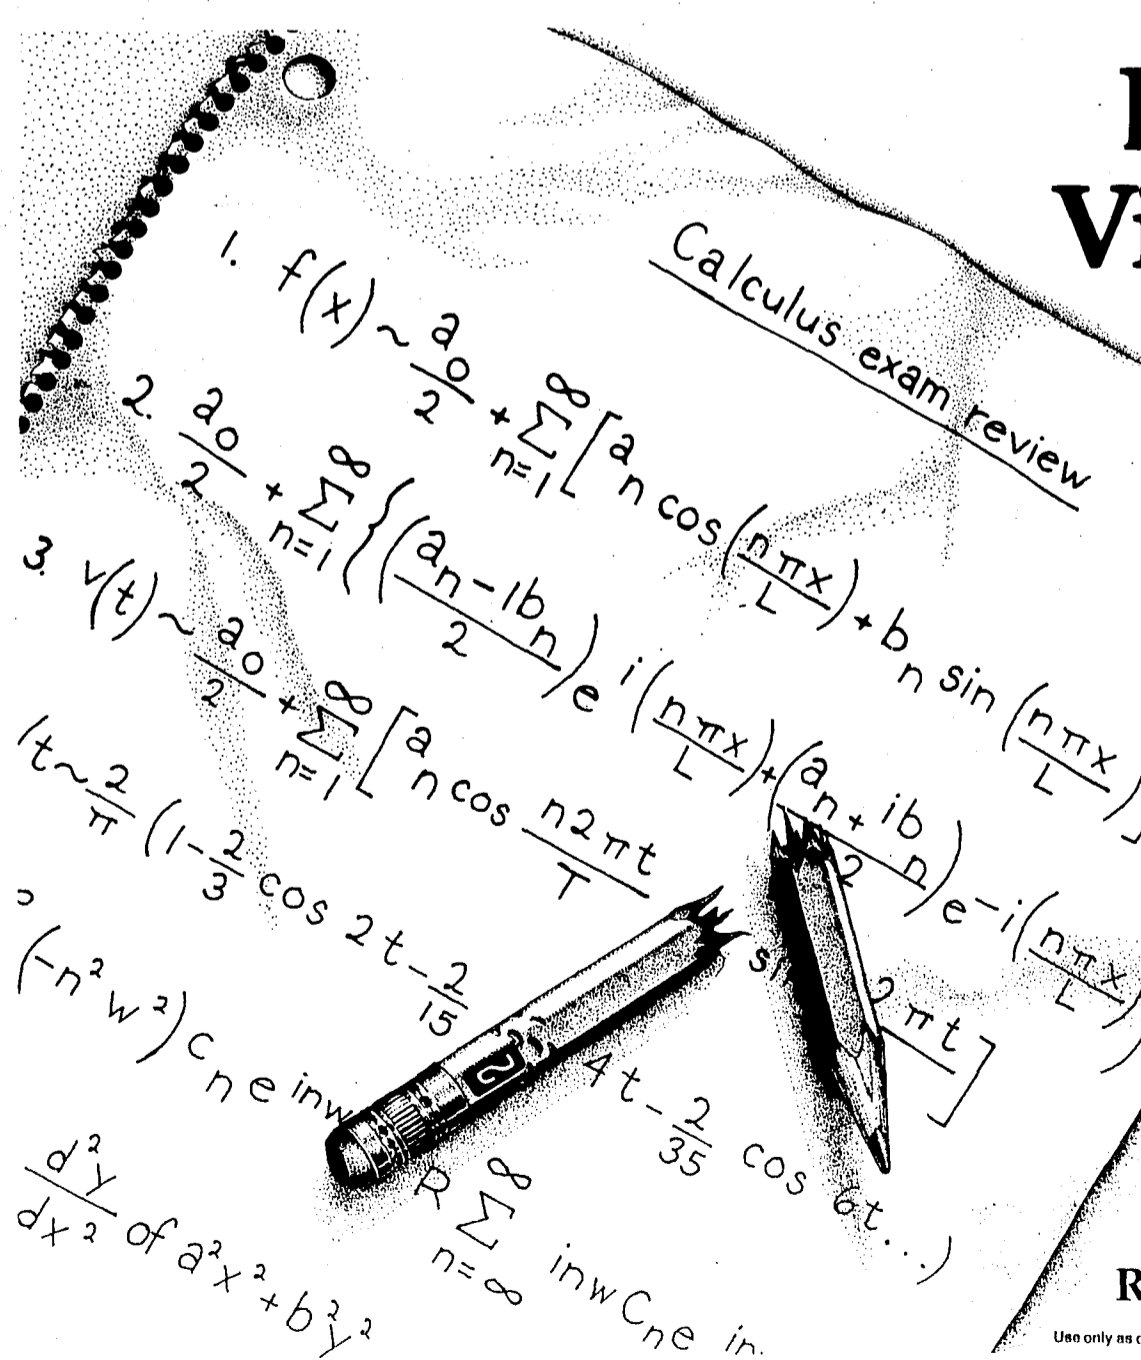 Calculus exam review
1. f(x) ~ a₀/2 + ∑ₙ₌₁^∞ [aₙ cos (nπx/L) + bₙ sin (nπx/L)]
2. a₀/2 + ∑ₙ₌₁^∞ {((aₙ - 1bₙ)/2) e i(nπx/L) + ((aₙ + ibₙ)/2) e - i(nπx/L)
3. v(t) ~ a₀/2 + ∑ₙ₌₁^∞ [aₙ cos n2πt/T 2πt]
t ~ 2/π (1 - 2/3 cos 2t - 2/15 4t - 2/35 cos 6t...)
(-n² w²) Cₙ e inw R ∑ₙ₌∞^∞ inw Cₙ e in
d²y/dx² of a²x² + b²y²
Use only as